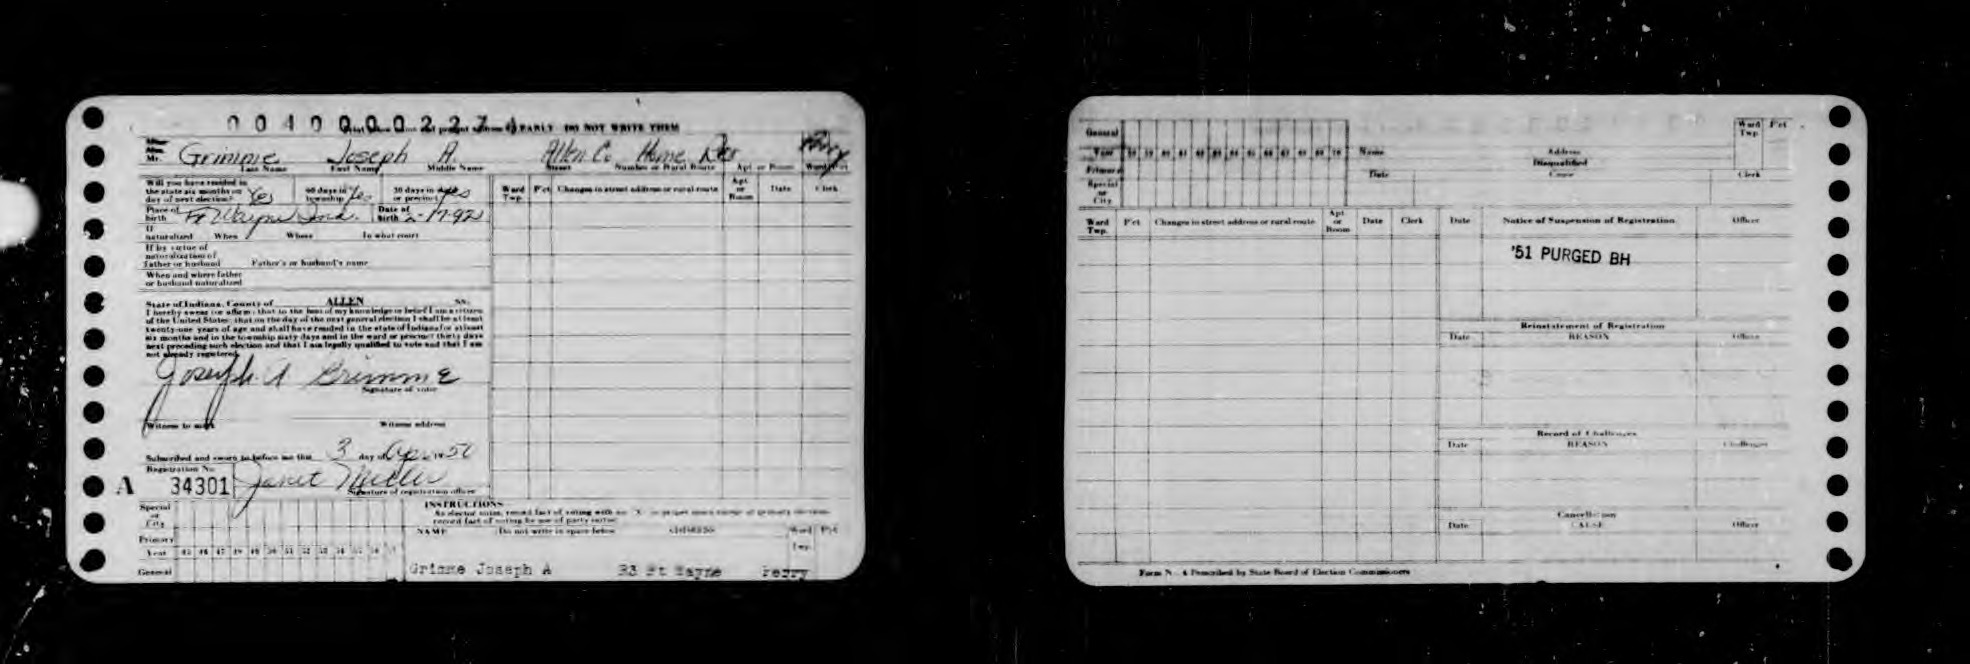 0 0 4 0 0 0 0 2 2 7
DO NOT WRITE THEM
Mr. Grimme Joseph A. Allen Co Home Perry
Last Name First Name Middle Name Street Number or Rural Route Apt or Room Ward Pct
Will you have resided in
the state six months on
day of next election? Yes 60 days in township Yes 30 days in or precinct Yes
Place of birth Ft Wayne Ind. Date of birth 2-17-92
If
naturalized When Where In what court
If by virtue of
naturalization of
father or husband Father's or husband's name
When and where father
or husband naturalized
State of Indiana, County of ALLEN ss.
I hereby swear (or affirm) that to the best of my knowledge or belief I am a citizen
of the United States; that on the day of the next general election I shall be at least
twenty-one years of age and shall have resided in the state of Indiana for at least
six months and in the township sixty days and in the ward or precinct thirty days
next preceding such election and that I am legally qualified to vote and that I am
not already registered.
Joseph A Grimme
Signature of voter
Witness to mark Witness address
Subscribed and sworn to before me this 3 day of Apr 1950
Registration No.
A 34301 Janet Miller
Signature of registration officer
Ward Twp. P'ct Changes in street address or rural route Apt or Room Date Clerk
Special
or
City
Primary
Year 45 46 47 48 49 50 51 52 53 54 55 56
General
INSTRUCTIONS
record fact of voting by use of party
NAME Do not write in space below ADDRESS Ward Pct
Twp.
Grimme Joseph A R3 Ft Wayne Perry
General
Year
Primary
Special
or
City
Name Address Ward Twp. P'ct
Disqualified
Date Cause Clerk
Ward Twp. P'ct Changes in street address or rural route Apt or Room Date Clerk
Date Notice of Suspension of Registration Officer
'51 PURGED BH
Reinstatement of Registration
Date REASON Officer
Record of Challenges
Date REASON Challenger
Cancellation
Date CAUSE Officer
Form No. 4 Prescribed by State Board of Election Commissioners